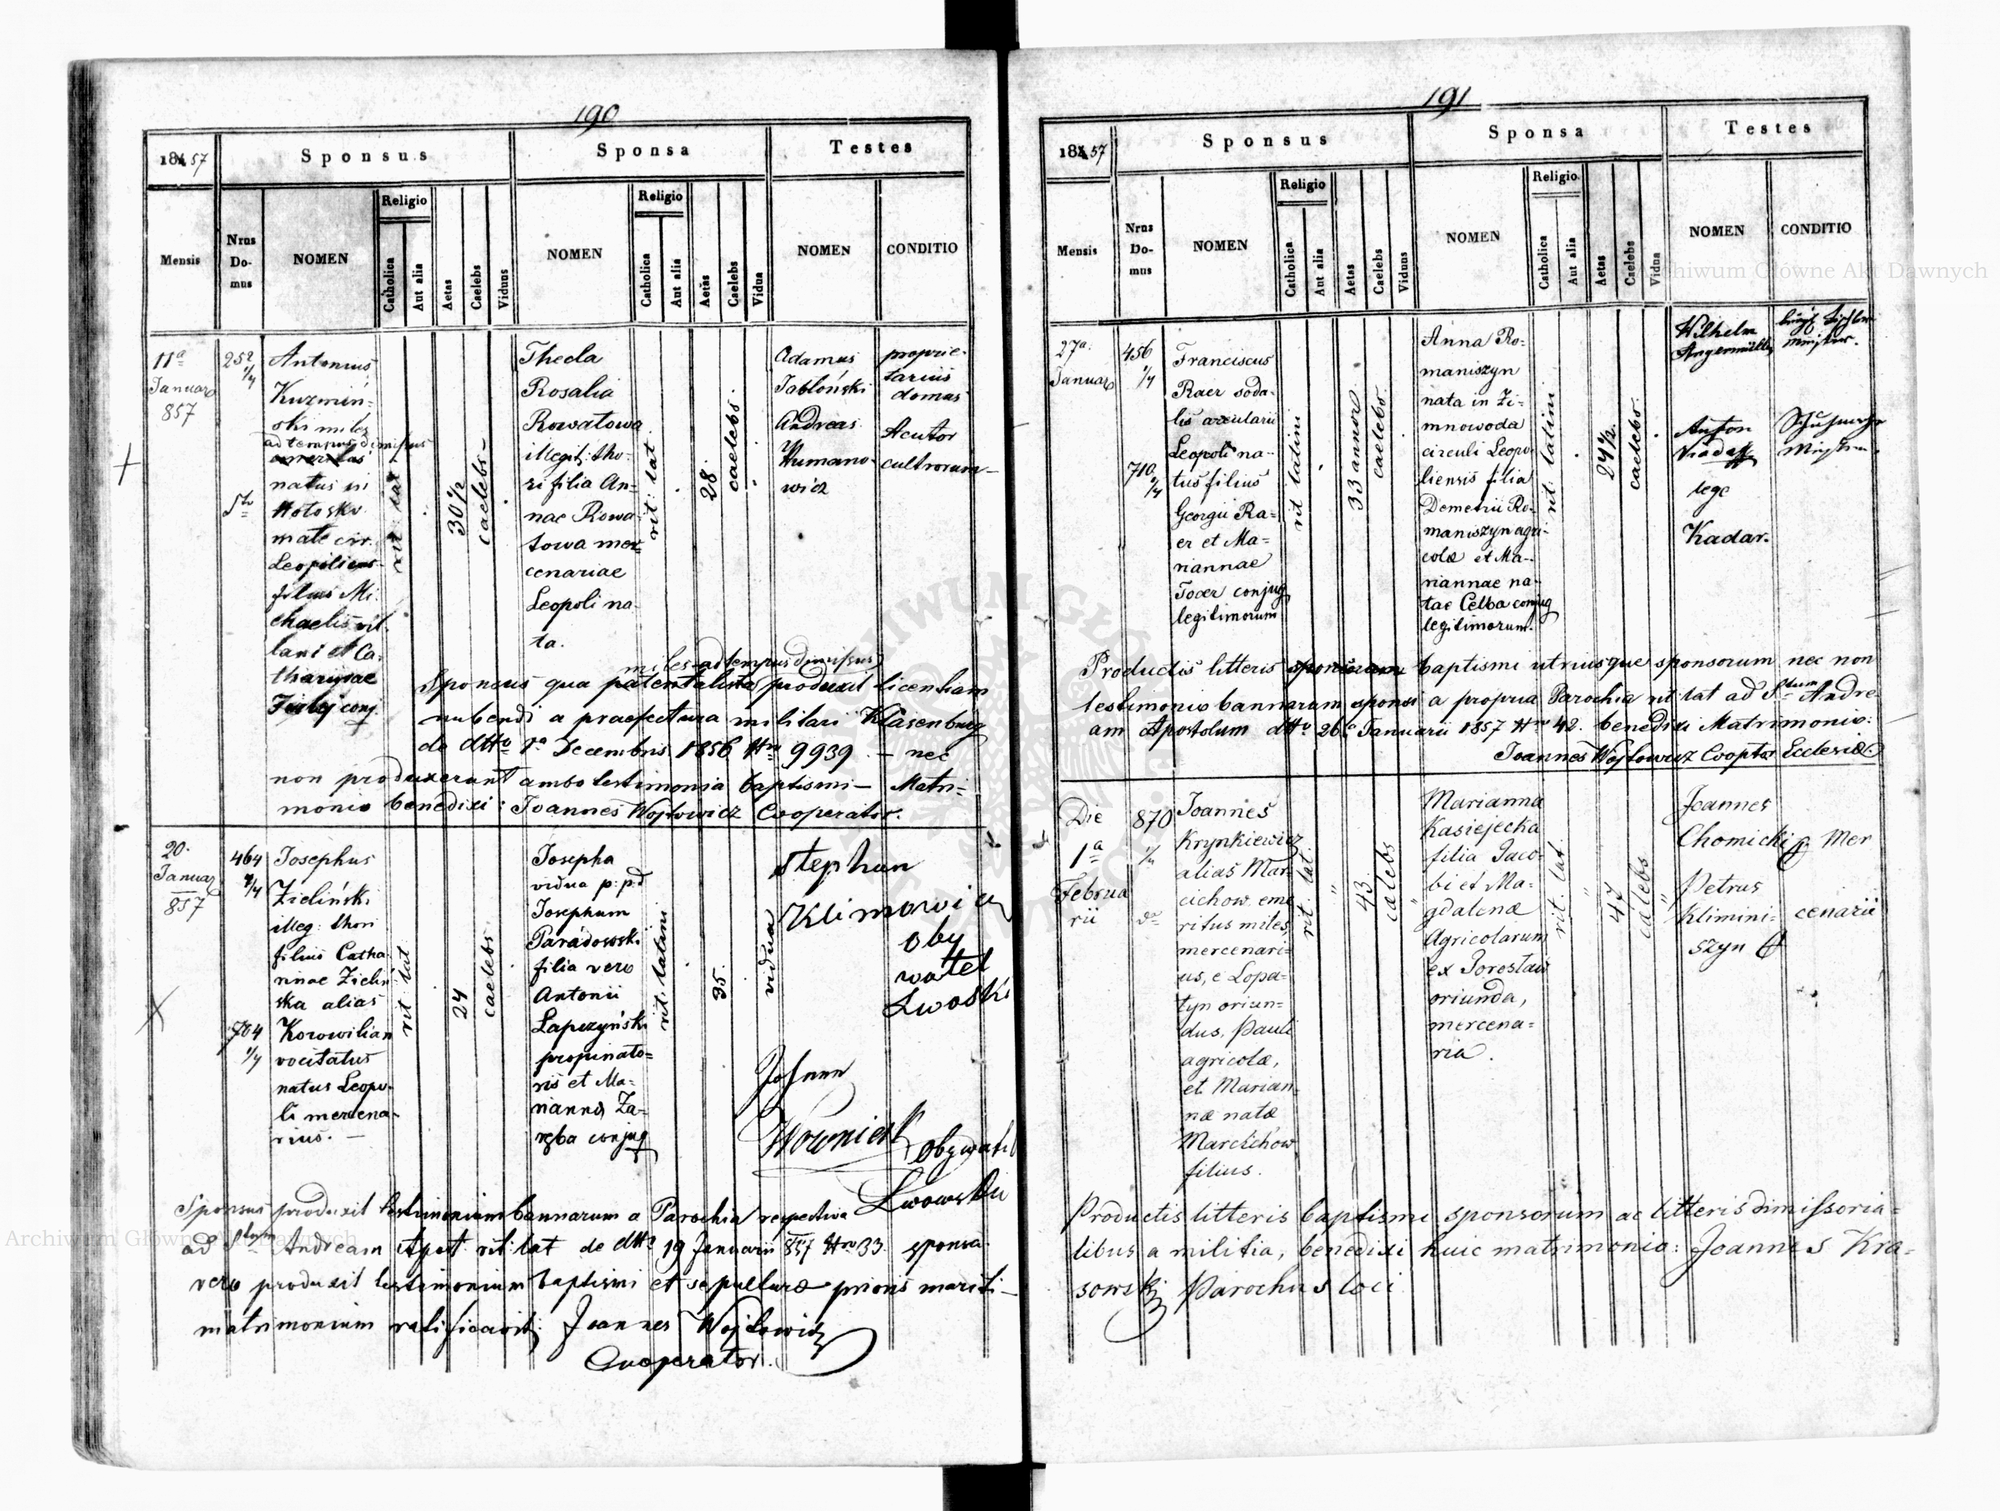 190
1857
Sponsus
Sponsa
Testes
Mensis
Nrus Do-mus
NOMEN
Religio
Catholica
Aut alia
Aetas
Caelebs
Viduus
NOMEN
Religio
Catholica
Aut alia
Aetas
Caelebs
Vidua
NOMEN
CONDITIO
11a
Januar
857
252
1/4
Antonius
Kuzmin-
ski miles
ad tempus dimissus
natus in
mate cir.
filius Mi-
chaelis vil-
lani et Ca-
tharinae
conj.
rit. lat
30 1/2
caelebs
Thecla
Rosalia
Rowatowa
illegit: tho-
ri filia An-
nae Rowa-
towa mer-
cenariae
Leopoli na-
ta.
rit: lat
28
caelebs
Adamus
Jabłoński
Andreas
Humano-
wicz
proprie-
tarius
domus
Acutor
cultrorum
miles ad tempus dimissus
Sponsus qua patentalista produxit licentiam
nubendi a praefectura militari
de dtto 1a Decembris 1856 Nro 9939 - nec
non produxerunt ambo testimonia baptismi - Matri-
monio benedixi: Joannes Wojtowicz Cooperator.
20.
Januar
857
464
4/4
704
1/4
Josephus
Zieliński
illeg: thori
filius Catha
rinae Zielin
ska alias
Korowilian
vocitatus
natus Leopo-
li mercena-
rius.
rit lat
24
caelebs
Josepha
vidua p: p:d
Josephum
Paradowski
filia vero
Antonii
Łapczyński
propinato-
ris et Ma-
rianna Za-
ręba conjug
rit: latini
35.
vidua
Stephan
Klimowicz
oby
watel
Lwoski
Johann
Obywatel
Lwowski
Sponsus produxit testimonium bannorum a Parochia respectiva
ad Stum Andream Apost. rit lat de dtto 19 Januarii 857 Nro 33. sponsa
vero produxit testimonium baptismi et sepulturae prioris mariti -
matrimonium ratificavit: Joannes Wojtowicz
Cooperator.
191
1857
Sponsus
Sponsa
Testes
Mensis
Nrus Do-mus
NOMEN
Religio
Catholica
Aut alia
Aetas
Caelebs
Viduus
NOMEN
Religio
Catholica
Aut alia
Aetas
Caelebs
Vidua
NOMEN
CONDITIO
27a.
Januar
456
1/4
710.
2/4
Franciscus
Raer soda-
lis arcularii
Leopoli na-
tus filius
Georgii Ra-
er et Ma-
riannae
Toder conjug
legitimorum
rit latini
33 annor
caelebs.
Anna Ro-
maniszyn
nata in Zi-
mnowoda
circuli Leopo
liensis filia
Demetrii Ro-
maniszyn agri-
colae et Ma-
riannae na-
tae Celba conjug
legitimorum.
rit: latini
24 1/2.
caelebs.
Wilhelm
Angermüller
bürgl. Tischler
meister.
Anton
lege
Kadar.
Productis litteris baptismi utriusque sponsorum nec non
testimonio bannorum sponsi a propria Parochia rit lat ad Stum Andre
am Apostolum dtto 26a Januarii 1857 Nro 42. benedixi Matrimonio:
Joannes Wojtowicz Cooptor Ecclesiae.
Die
1a
Februa
rii
870
2/4
Joannes
Krynkiewicz
alias Mar-
cichow. eme
ritus miles,
mercenari-
us, e Lopa-
tyn oriun-
dus, Pauli
agricolae,
et Marian-
nae natae
Marcichow
filius.
rit. lat.
43.
caelebs
Marianna
Kasiejecka
filia Jaco-
bi et Ma-
gdalenae
Agricolarum
ex
oriunda,
mercena-
ria.
rit. lat.
47
caelebs
Joannes
Chomicki
Petrus
Klimini-
szyn
Mer
cenarii
Productis litteris baptismi sponsorum ac litteris dimissoria-
libus a militia, benedixi huic matrimonio: Joannes Kra-
sowski Parochus loci
Archiwum Główne Akt Dawnych
Archiwum Główne Akt Dawnych